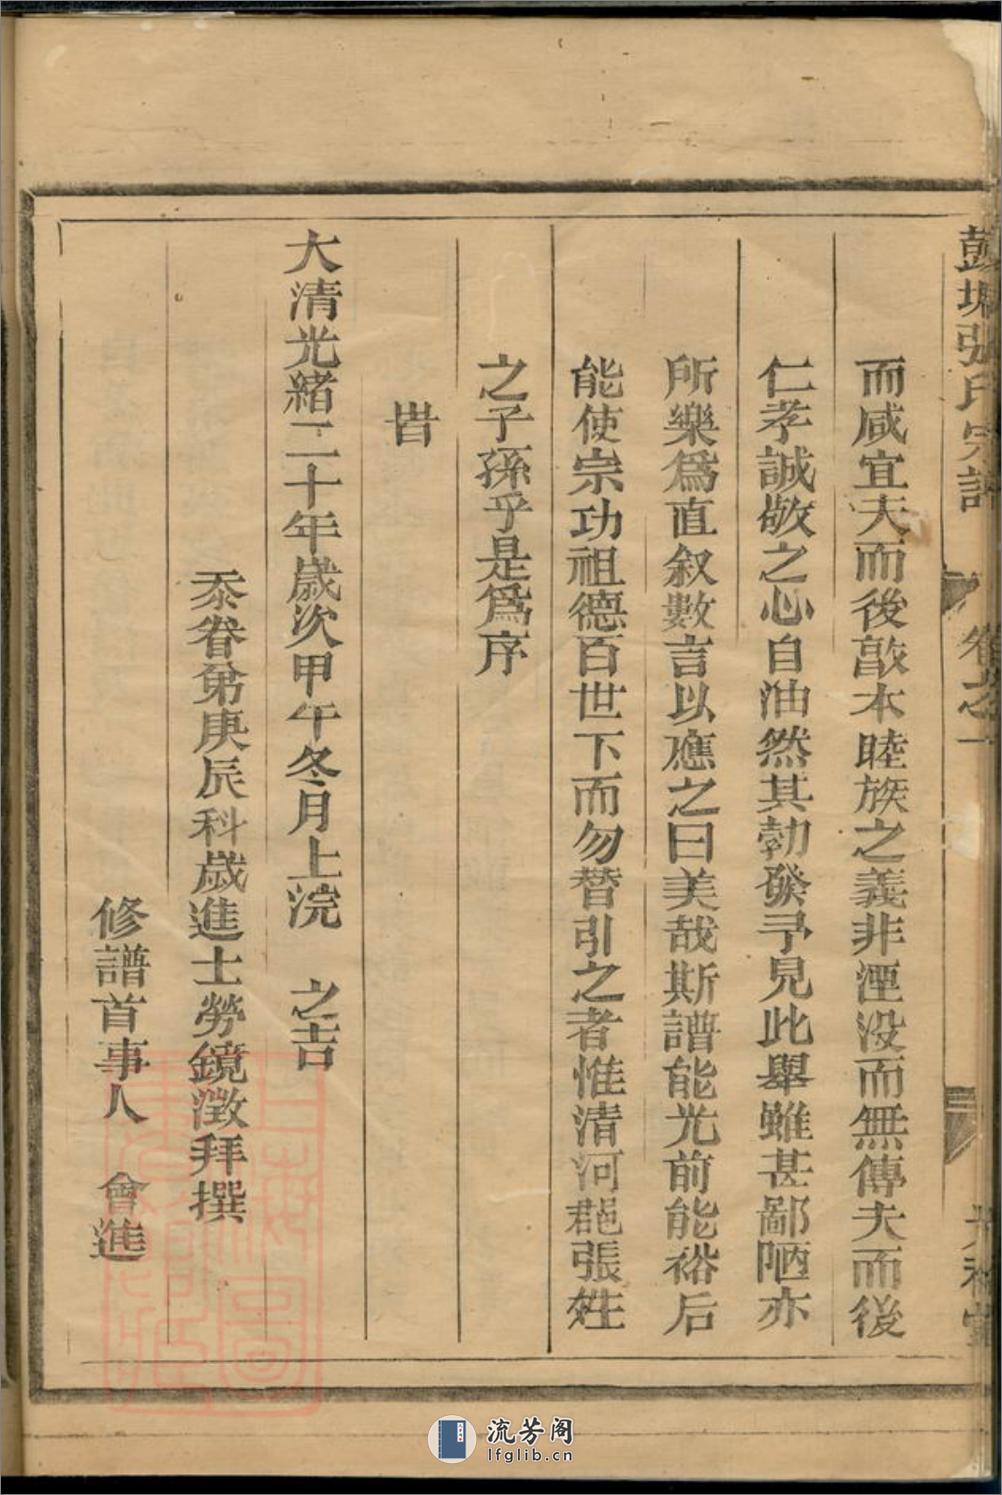 張氏宗譜 卷之一
而咸宜夫而後敦本睦族之義非湮没而無傳夫而後
仁孝誠敬之心自油然其勃發予見此舉雖甚鄙陋亦
所樂為直叙數言以應之曰美哉斯譜能光前能裕后
能使宗功祖德百世下而勿替引之者惟清河郡張姓
之子孫乎是為序
旹
大清光緒二十年歲次甲午冬月上浣 之吉
忝眷弟庚辰科歲進士勞鏡澂拜撰
修譜首事人 會進
上海圖書館藏
流芳阁
lfglib.cn